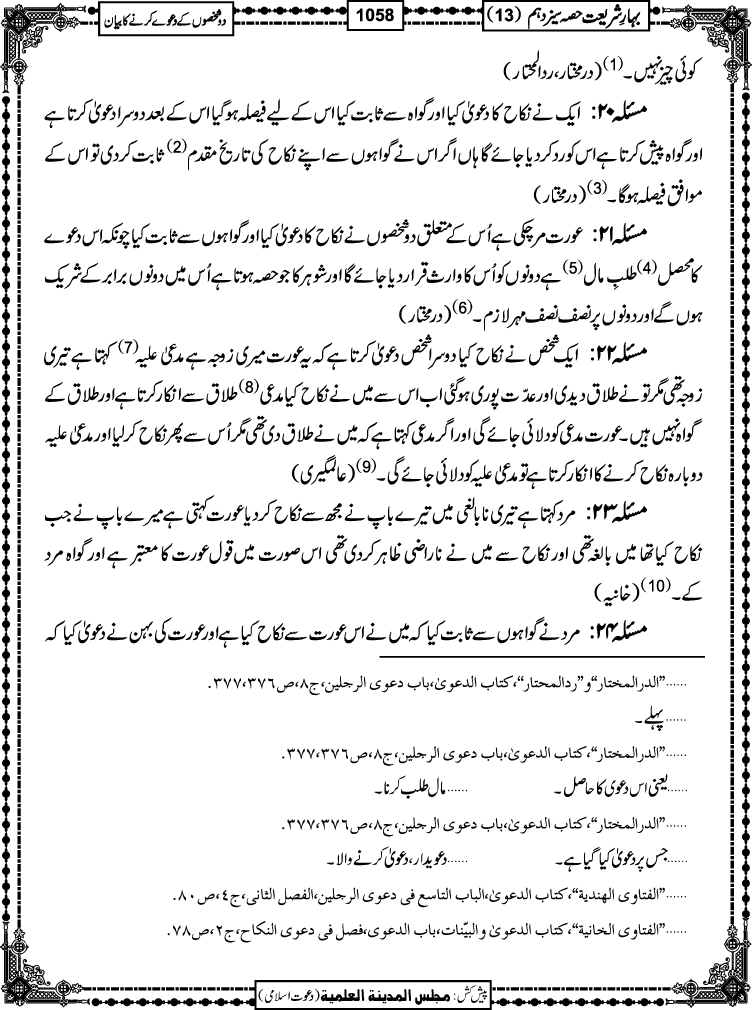 بہارِ شریعت حصہ سیزدہم (13)
1058
دو شخصوں کے دعوے کرنے کا بیان
کوئی چیز نہیں۔(1) (درمختار، ردالمحتار)
مسئلہ ۲۰: ایک نے نکاح کا دعویٰ کیا اور گواہ سے ثابت کیا اس کے لیے فیصلہ ہوگیا اس کے بعد دوسرا دعویٰ کرتا ہے
اور گواہ پیش کرتا ہے اس کو رد کردیا جائے گا ہاں اگر اس نے گواہوں سے اپنے نکاح کی تاریخ مقدم(2) ثابت کردی تو اس کے
موافق فیصلہ ہوگا۔(3) (درمختار)
مسئلہ ۲۱: عورت مرچکی ہے اُس کے متعلق دو شخصوں نے نکاح کا دعویٰ کیا اور گواہوں سے ثابت کیا چونکہ اس دعوے
کا محصل(4) طلبِ مال(5) ہے دونوں کو اُس کا وارث قرار دیا جائے گا اور شوہر کا جو حصہ ہوتا ہے اُس میں دونوں برابر کے شریک
ہوں گے اور دونوں پر نصف نصف مہر لازم۔(6) (درمختار)
مسئلہ ۲۲: ایک شخص نے نکاح کیا دوسرا شخص دعویٰ کرتا ہے کہ یہ عورت میری زوجہ ہے مدعیٰ علیہ(7) کہتا ہے تیری
زوجہ تھی مگر تونے طلاق دیدی اور عدّت پوری ہوگئی اب اس سے میں نے نکاح کیا مدعی(8) طلاق سے انکار کرتا ہے اور طلاق کے
گواہ نہیں ہیں۔ عورت مدعی کو دلائی جائے گی اور اگر مدعی کہتا ہے کہ میں نے طلاق دی تھی مگر اُس سے پھر نکاح کرلیا اور مدعیٰ علیہ
دوبارہ نکاح کرنے کا انکار کرتا ہے تو مدعیٰ علیہ کو دلائی جائے گی۔(9) (عالمگیری)
مسئلہ ۲۳: مرد کہتا ہے تیری نابالغی میں تیرے باپ نے مجھ سے نکاح کردیا عورت کہتی ہے میرے باپ نے جب
نکاح کیا تھا میں بالغہ تھی اور نکاح سے میں نے ناراضی ظاہر کردی تھی اس صورت میں قول عورت کا معتبر ہے اور گواہ مرد
کے۔(10) (خانیہ)
مسئلہ ۲۴: مرد نے گواہوں سے ثابت کیا کہ میں نے اس عورت سے نکاح کیا ہے اور عورت کی بہن نے دعویٰ کیا کہ
......"الدرالمختار" و"ردالمحتار"، کتاب الدعویٰ، باب دعوی الرجلین، ج۸، ص۳۷۷،۳۷٦.
......پہلے۔
......"الدرالمختار"، کتاب الدعویٰ، باب دعوی الرجلین، ج۸، ص۳۷۷،۳۷٦.
......یعنی اس دعویٰ کا حاصل۔ ......مال طلب کرنا۔
......"الدرالمختار"، کتاب الدعویٰ، باب دعوی الرجلین، ج۸، ص۳۷۷،۳۷٦.
......جس پر دعویٰ کیا گیا ہے۔ ......دعویدار، دعویٰ کرنے والا۔
......"الفتاوی الھندیة"، کتاب الدعویٰ، الباب التاسع فی دعوی الرجلین، الفصل الثانی، ج٤، ص۸۰.
......"الفتاوی الخانیة"، کتاب الدعویٰ والبیّنات، باب الدعوی، فصل فی دعوی النکاح، ج۲، ص۷۸.
پیش کش: مجلس المدینة العلمیة (دعوت اسلامی)